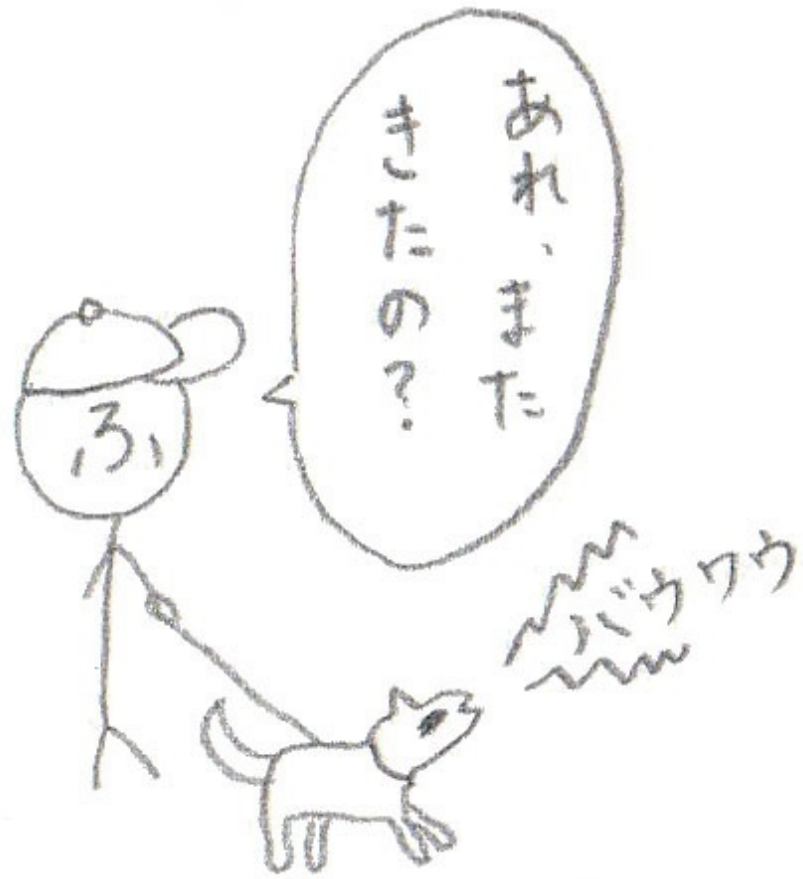 あれ、また
きたの?
ふ
バウワウ